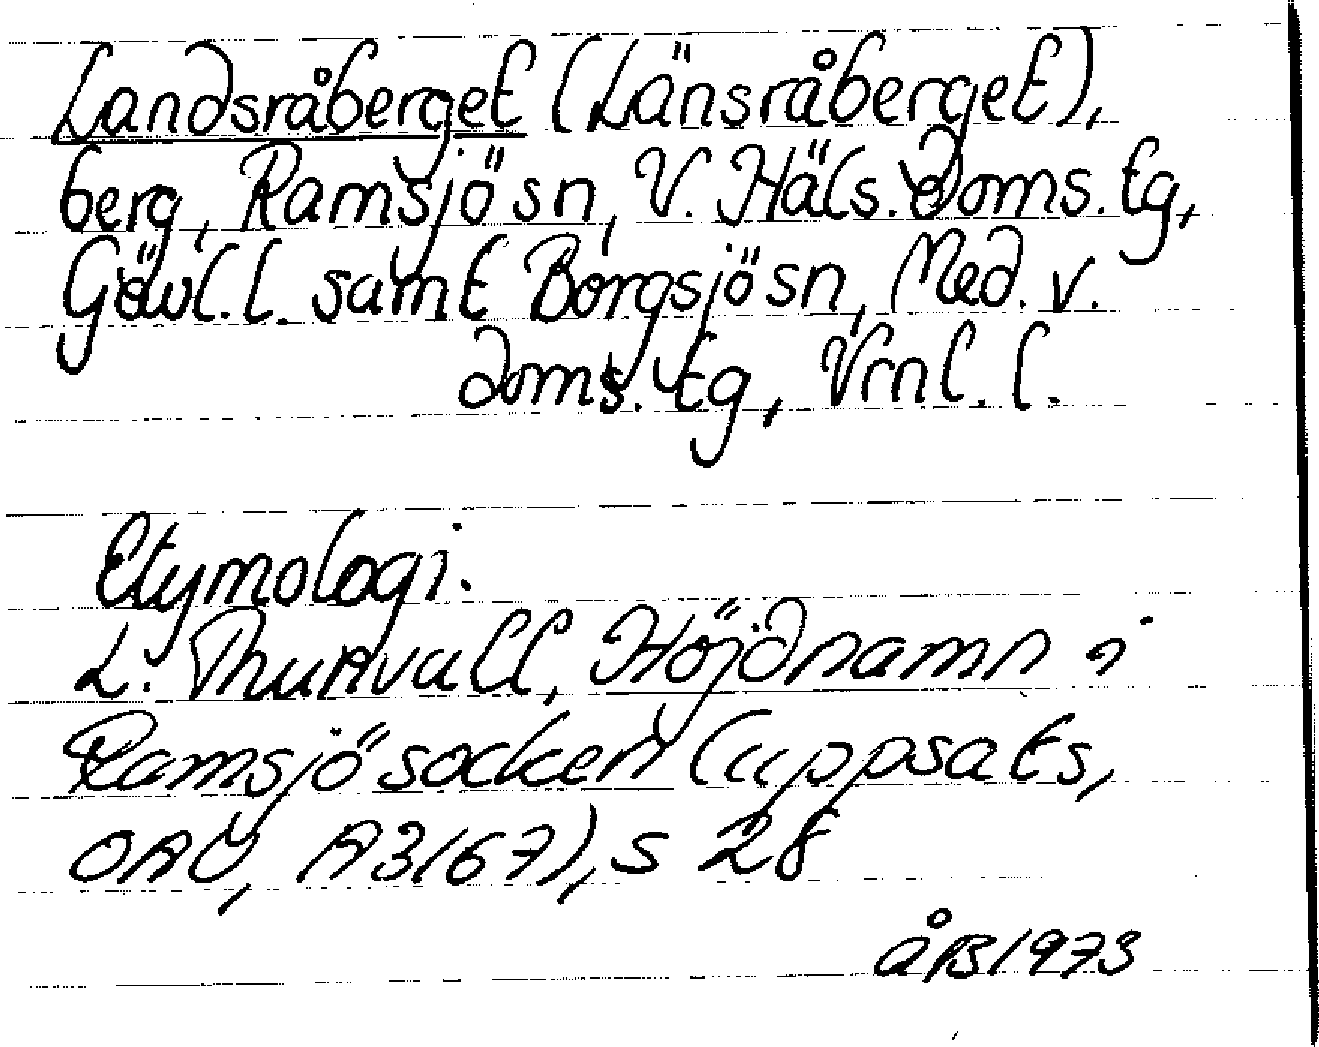 Landsråberget (Länsråberget),
berg, Ramsjö sn, V. Häls. doms. tg,
Gävl. l. samt Borgsjö sn, Med. v.
doms. tg, Vrnl. l.
Etymologi.
L. Thunvall, Höjdnamn i
Ramsjö socken (uppsats,
OAU, A3/67), s 28
åB 1973